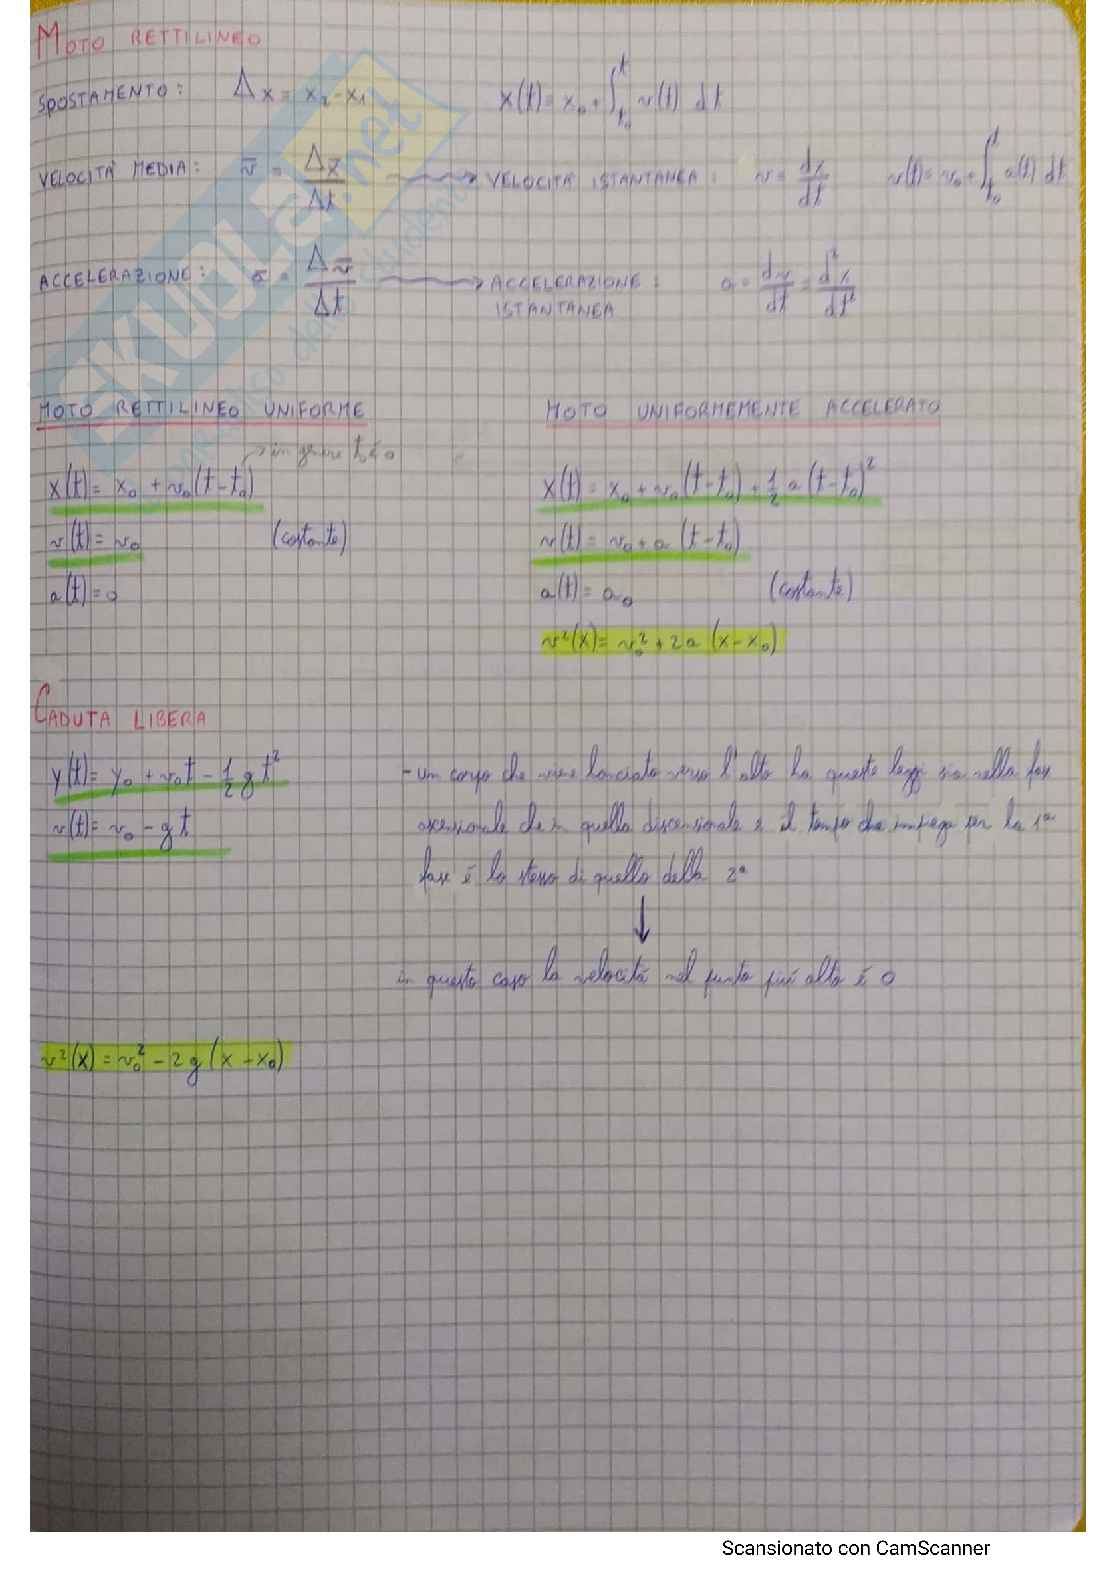 MOTO RETTILINEO
SPOSTAMENTO: Δx = x₂ - x₁ x(t) = x₀ + ∫ₜ₀ᵗ v(t) dt
VELOCITÀ MEDIA: v̅ = Δx/Δt → VELOCITÀ ISTANTANEA: v = dx/dt v(t) = v₀ + ∫ₜ₀ᵗ a(t) dt
ACCELERAZIONE: a̅ = Δv̅/Δt → ACCELERAZIONE ISTANTANEA: a = dv/dt = d²x/dt²
MOTO RETTILINEO UNIFORME
→ in genere t₀ = 0
x(t) = x₀ + v₀(t - t₀)
v(t) = v₀ (costante)
a(t) = 0
MOTO UNIFORMEMENTE ACCELERATO
x(t) = x₀ + v₀(t - t₀) + ½ a (t - t₀)²
v(t) = v₀ + a (t - t₀)
a(t) = a₀ (costante)
v²(x) = v₀² + 2a (x - x₀)
CADUTA LIBERA
y(t) = y₀ + v₀t - ½ g t²
v(t) = v₀ - g t
- un corpo che viene lanciato verso l'alto ha queste leggi sia nella fase
ascensionale che in quella discensionale e il tempo che impiega per la 1ª
fase è lo stesso di quello della 2ª
↓
in questo caso la velocità nel punto più alto è 0
v²(x) = v₀² - 2g (x - x₀)
SKUOLA.net
Scansionato con CamScanner